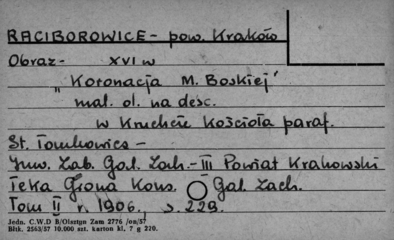 RACIBOROWICE - pow. Kraków
Obraz - XVI w
"Koronacja M. Boskiej"
mal. ol. na desc.
w Kruchcie Kościoła paraf.
St. Tomkowics -
Inw. Zab. Gal. Zach. - III Powiat Krakowski
Teka Grona Kons. Gal. Zach.
Tom II r. 1906, s. 229.
Jedn. C.W.D B/Olsztyn Zam 2776 /on/57
Bltk. 2563/57 10.000 szt. karton kl. 7 g 220.